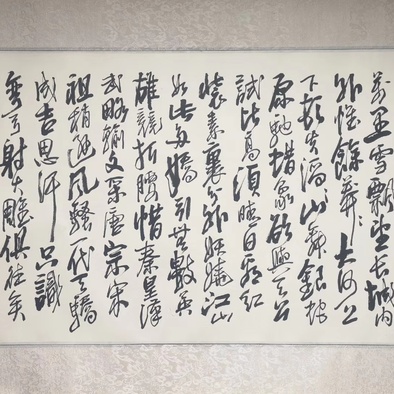 萬里雪飄望長城内
外惟餘莽莽大河上
下頓失滔滔山舞銀蛇
原馳蜡象欲與天公
試比高須晴日看紅
裝素裹分外妖嬈江山
如此多嬌引無數英
雄競折腰惜秦皇漢
武略輸文采唐宗宋
祖稍遜風騷一代天驕
成吉思汗只識
彎弓射大雕俱往矣